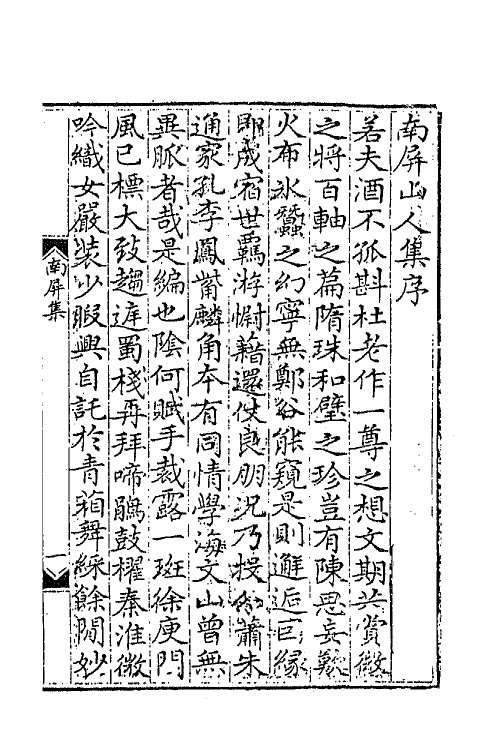 南屏山人集序
若夫酒不孤斟杜老作一尊之想文期共賞微
之將百軸之篇隋珠和璧之珍豈有陳思妄歎
火布氷蠶之幻寧無鄭谷能窺是則邂逅巨緣
即成宿世羈游慰藉還仗良朋况乃投分蕭朱
通家孔李鳳觜麟角本有同情學海文山曽無
異脈者哉是編也陰何賦手裁露一斑徐庾門
風已標大致趨遊蜀棧再拜啼鵑鼓櫂秦淮微
吟織女嚴裝少暇興自託於青箱舞綵餘閒妙
南屏集
一